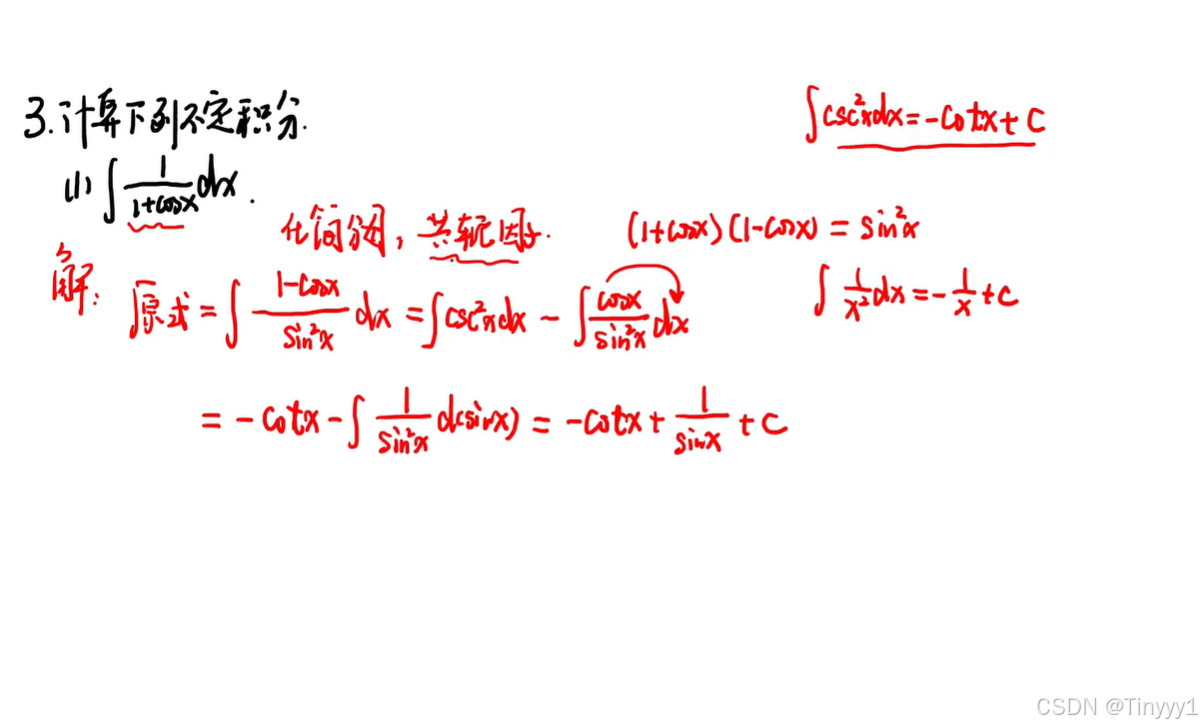 3.计算下列不定积分.
∫csc²xdx=-cotx+C
(1) ∫ 1/(1+cosx) dx.
化简分母，共轭因子. (1+cosx)(1-cosx)=sin²x
解: 原式=∫ (1-cosx)/(sin²x) dx=∫csc²xdx-∫ cosx/(sin²x) dx
∫ 1/x² dx=-1/x+C
=-cotx-∫ 1/(sin²x) d(sinx)=-cotx+1/(sinx)+C
CSDN @Tinyyy1